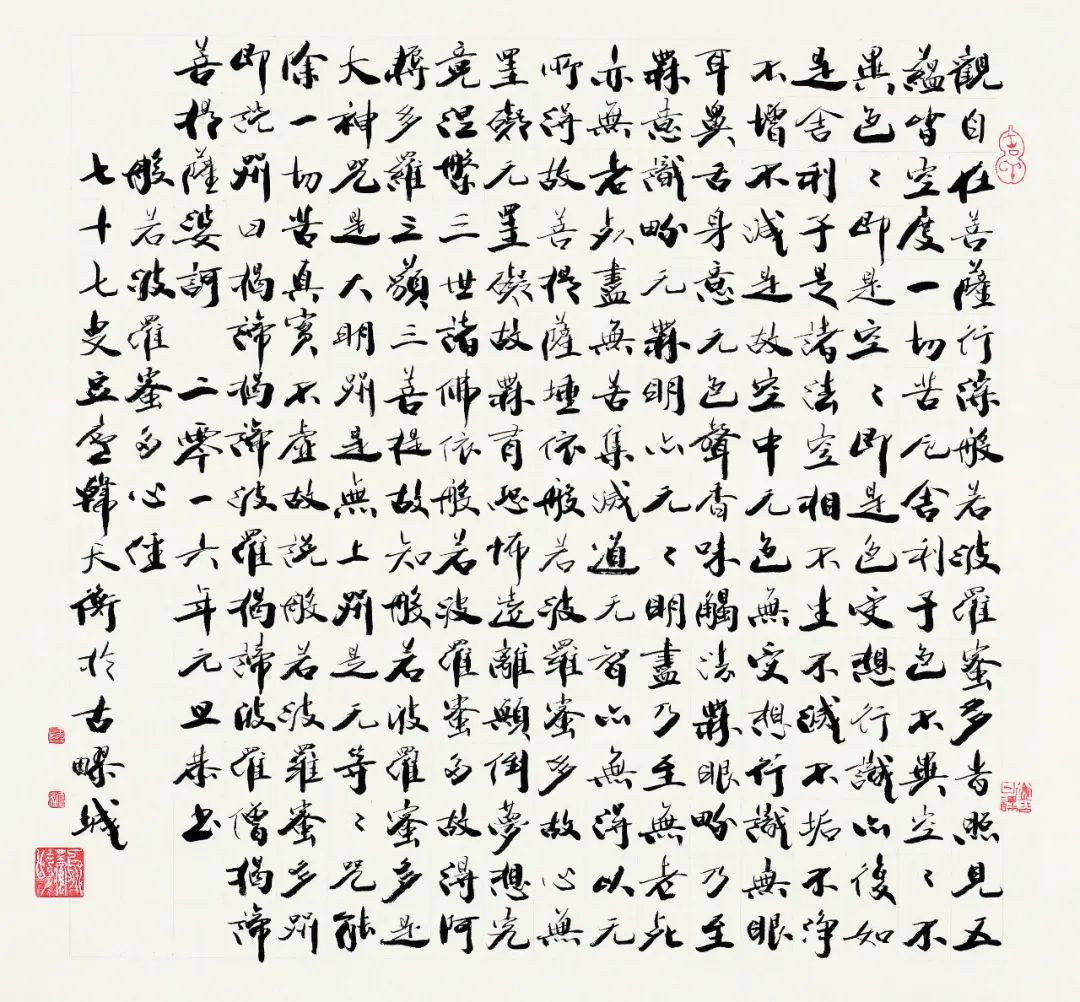 觀自在菩薩行深般若波羅蜜多旹照見五
蘊皆空度一切苦厄舍利子色不異空〻不
異色〻即是空〻即是色受想行識亦復如
是舍利子是諸法空相不生不滅不垢不淨
不增不減是故空中无色無受想行識無眼
耳鼻舌身意无色聲香味觸法無眼畍乃至
無意識畍无無明亦无〻明盡乃至無老死
亦無老死盡無苦集滅道无智亦無得以无
所得故菩提薩埵依般若波羅蜜多故心無
罣礙无罣礙故無有恐怖遠離顛倒夢想究
竟涅槃三世諸佛依般若波羅蜜多故得阿
耨多羅三藐三菩提故知般若波羅蜜多是
大神咒是大明咒是無上咒是无等〻咒能
除一切苦真實不虛故說般若波羅蜜多咒
即說咒曰揭諦揭諦波羅揭諦波羅僧揭諦
菩提薩婆訶 二零一六年元旦恭書
般若波羅蜜多心經
七十七叟豆廬韓天衡於古疁城